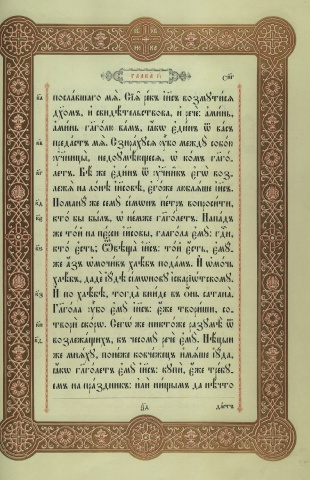 ГЛАВА ГІ
пославшаго мѧ. Сїѧ̑ ре́къ і҆и҃съ возмꙋти́сѧ
дꙋ́хомъ, и҆ свидѣ́тельствова, и҆ речѐ: а҆ми́нь,
а҆ми́нь гл҃аго́лю ва́мъ, ꙗ҆́кѡ є҆ди́нъ ѿ ва́съ
преда́стъ мѧ̀. Сзира́хꙋсѧ ᲂу҆̀бо междꙋ̀ собо́ю
ᲂу҆чн҃цы̀, недоꙋмѣ́ющесѧ, ѡ҆ ко́мъ гл҃аго́-
летъ. Бѣ́ же є҆ди́нъ ѿ ᲂу҆чн҃къ є҆гѡ̀ воз-
лежѧ̀ на ло́нѣ і҆и҃совѣ, є҆го́же люблѧ́ше і҆и҃съ.
Поманꙋ́ же семꙋ̀ сі́мѡнъ пе́тръ вопроси́ти,
кто̀ бы бы́лъ, ѡ҆ не́мже гл҃аго́летъ. Напа́дъ
же то́й на пє́рси і҆и҃совы, глаго́ла є҆мꙋ̀: гдⷭ҇и,
кто̀ є҆́сть; Ѿвѣща̀ і҆и҃съ: то́й є҆́сть, є҆мꙋ́-
же а҆́зъ ѡ҆мочи́въ хлѣ́бъ пода́мъ. И҆ ѡ҆мо́чь
хлѣ́бъ, дадѐ і҆ꙋ́дѣ сі́мѡновꙋ і҆скарїѡ́тскомꙋ.
И҆ по хлѣ́бѣ, тогда̀ вни́де въ ѻ҆́нь сатана̀.
Гл҃аго́ла ᲂу҆̀бо є҆мꙋ̀ і҆и҃съ: є҆́же твори́ши, со-
творѝ ско́рѡ. Сегѡ́ же никто́же разꙋмѣ̀ ѿ
возлежа́щихъ, къ чесомꙋ̀ речѐ є҆мꙋ̀. Нѣ́цыи
же мнѧ́хꙋ, поне́же ковче́жецъ и҆мѧ́ше і҆ꙋ́да,
ꙗ҆́кѡ гл҃аго́летъ є҆мꙋ̀ і҆и҃съ: кꙋпѝ, є҆́же тре́бꙋ-
емъ на пра́здникъ: и҆лѝ ни́щымъ да нѣ́что
да́стъ